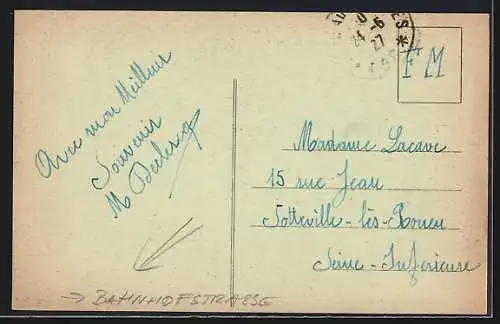 24 -6
27
FM
Avec mon Meilleur
Souvenir
M Declercq
Madame Lacave
15 rue Jean
Sotteville-lès-Rouen
Seine-Inférieure
→ BAHNHOFSTRASSE